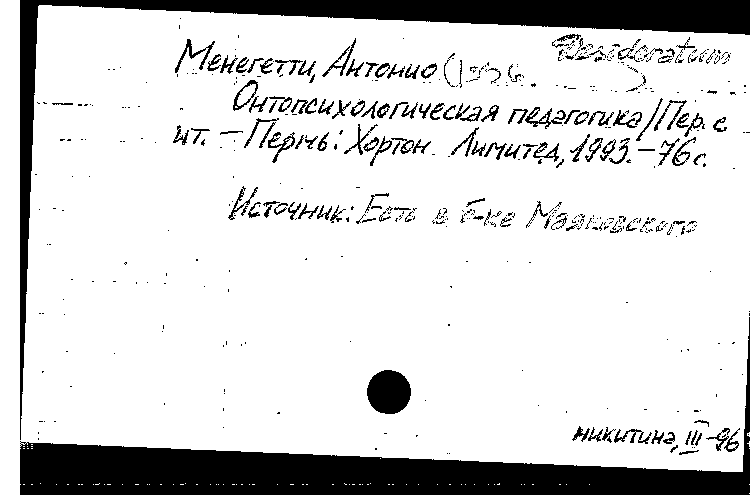 Desideratum
Менегетти, Антонио (1936.
Онтопсихологическая педагогика / Пер. с
ит. – Пермь: Хортон Лимитед, 1993. – 76 с.
Источник: Есть в б-ке Маяковского
никитина, III-96